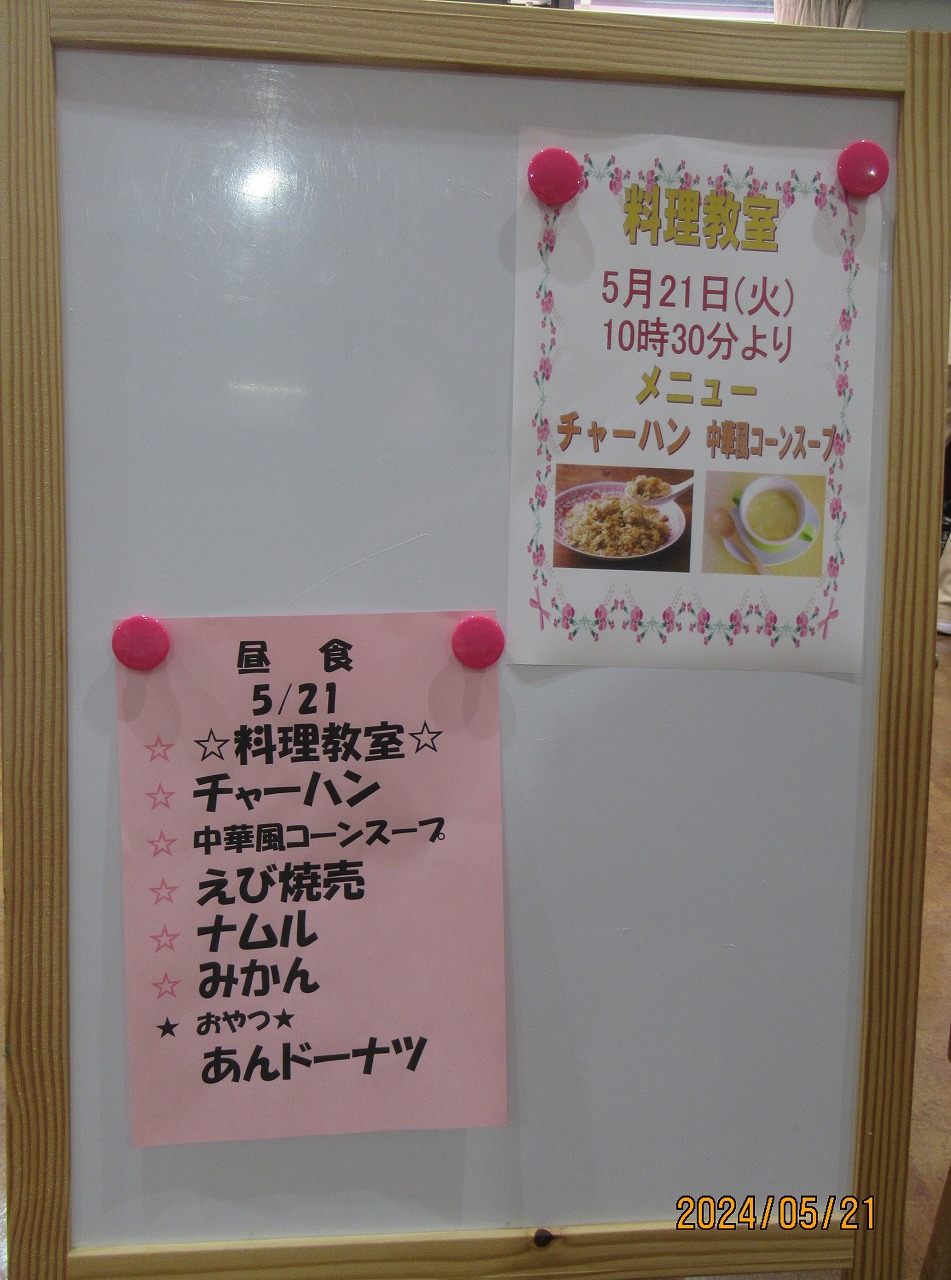 料理教室
5月21日(火)
10時30分より
メニュー
チャーハン 中華風コーンスープ
昼 食
5/21
☆ ☆料理教室☆
☆ チャーハン
☆ 中華風コーンスープ
☆ えび焼売
☆ ナムル
☆ みかん
★ おやつ★
あんドーナツ
2024/05/21